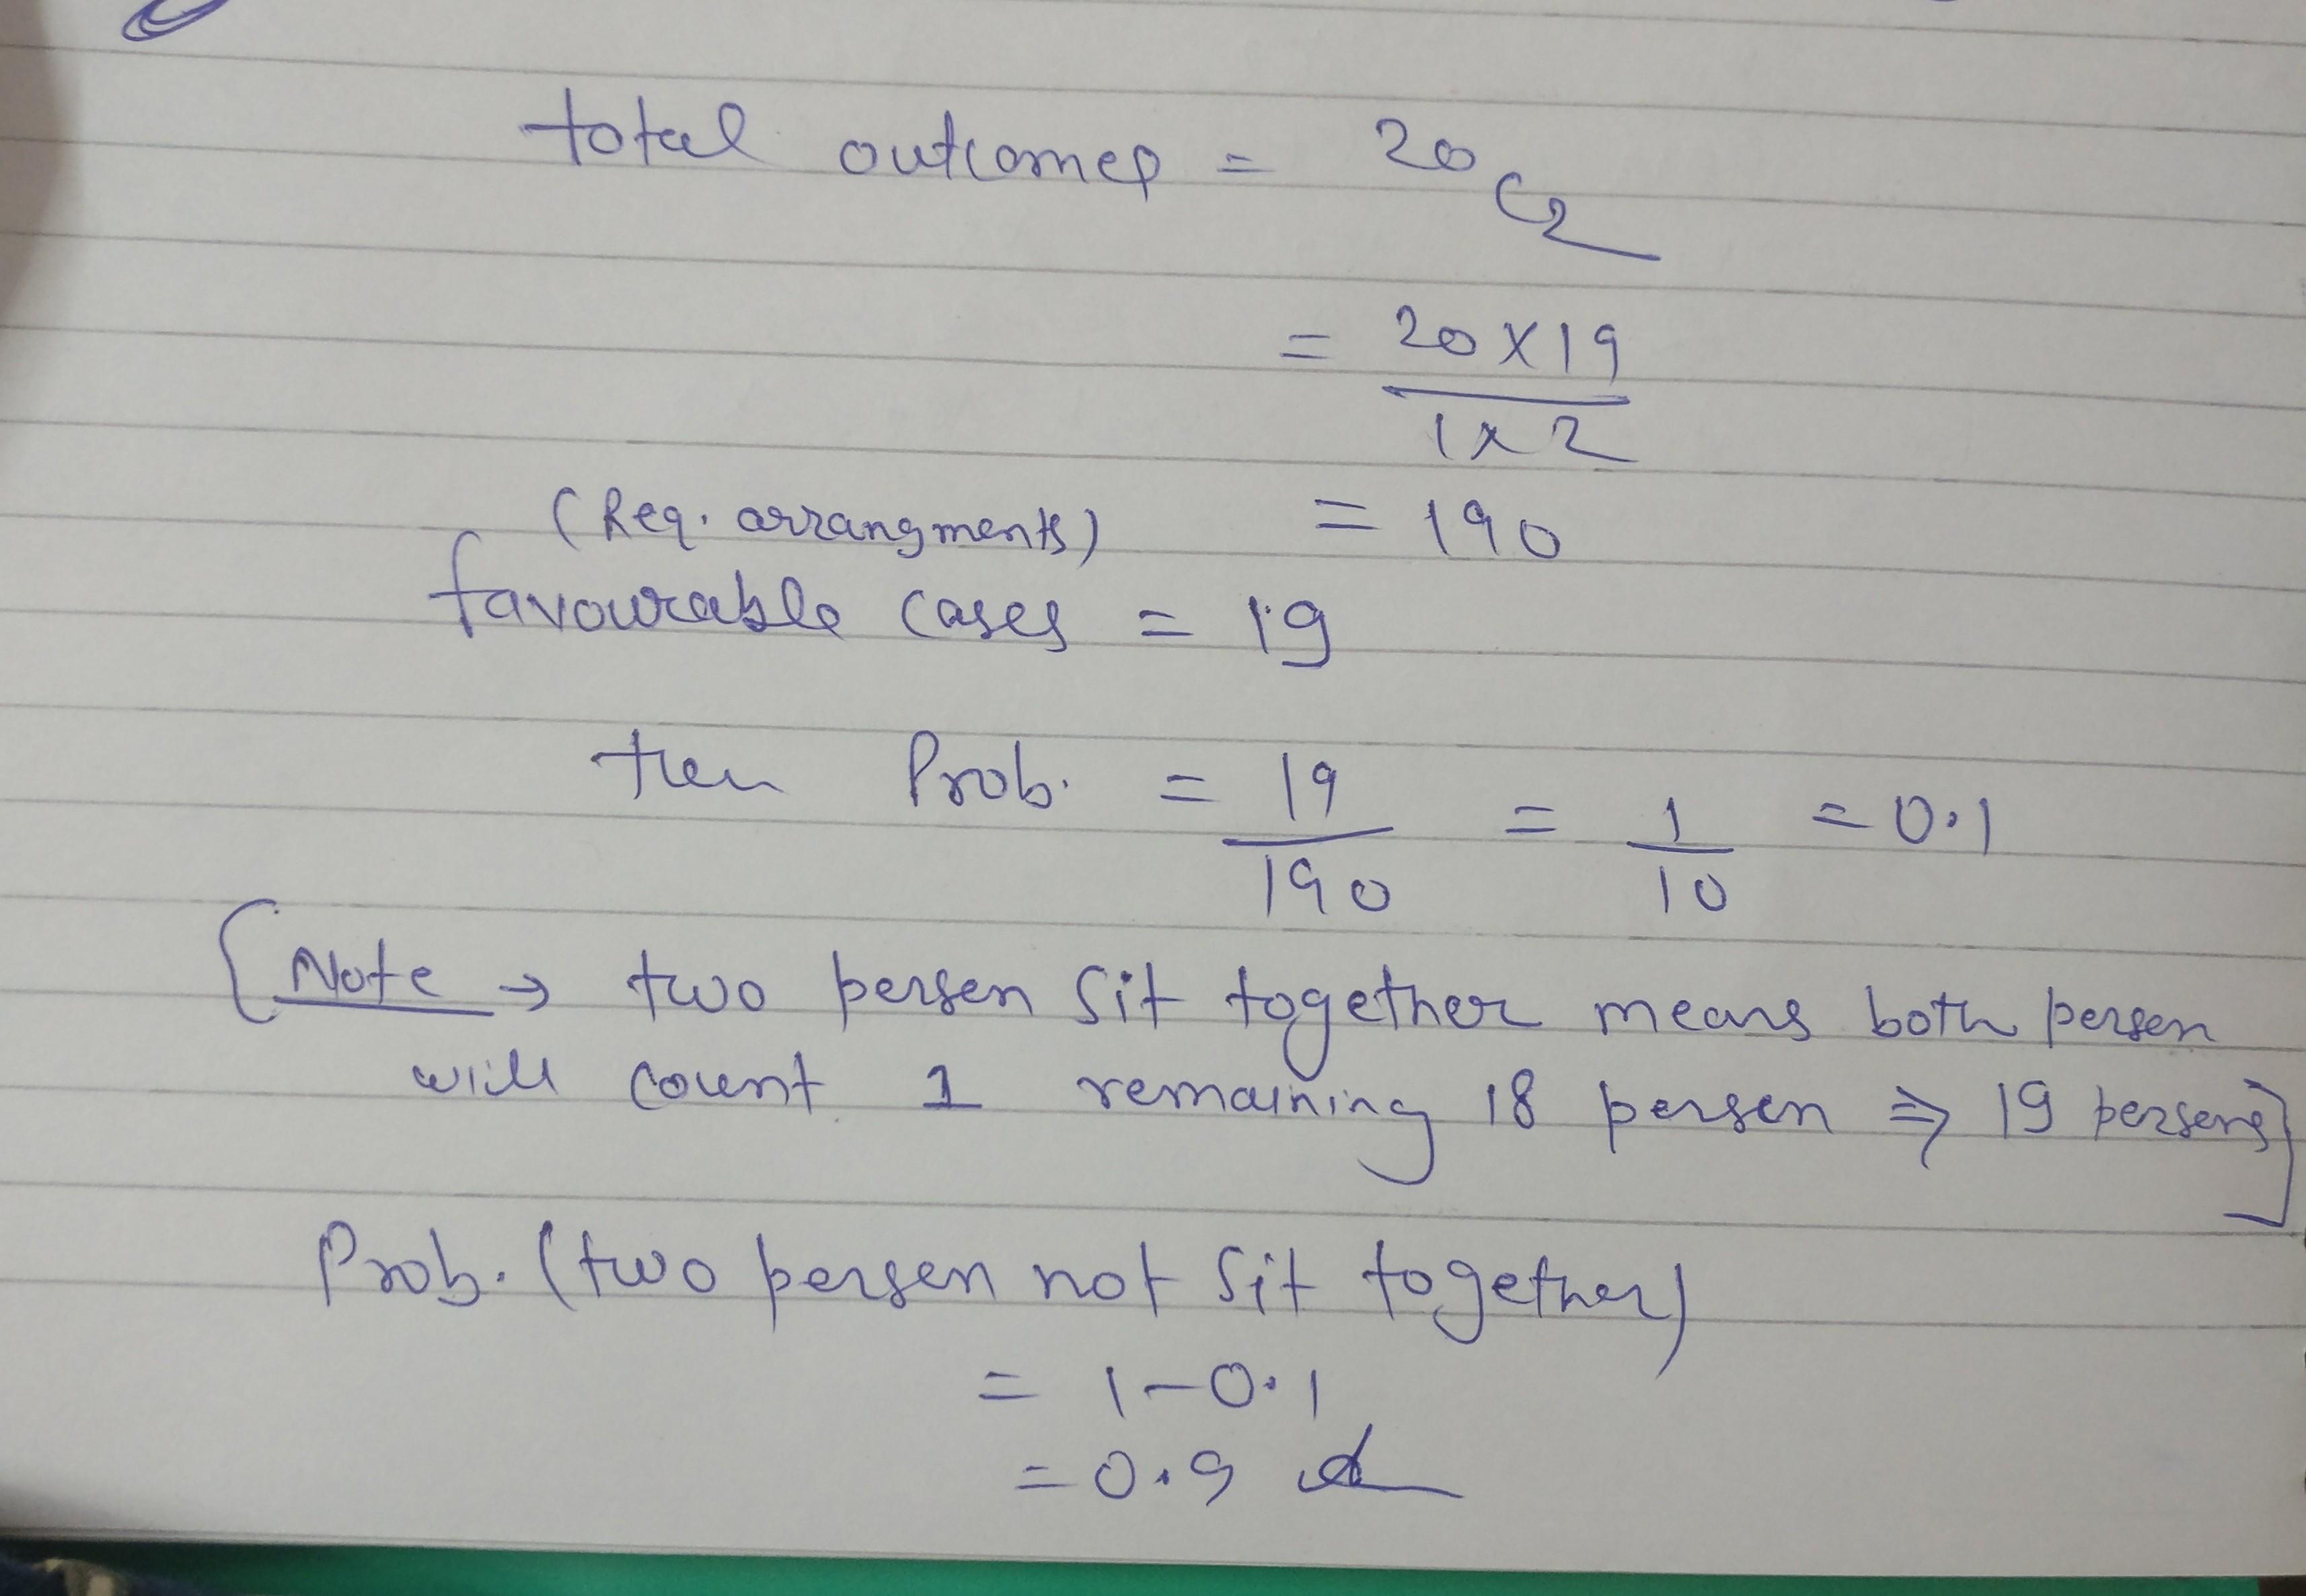 total outcomes = 20C2
= 20×19
1×2
(Req. arrangments) = 190
favourable cases = 19
then Prob. = 19/190 = 1/10 = 0.1
[Note → two persen sit together means both persen
will count 1 remaining 18 persen ⇒ 19 persens]
Prob. (two persen not sit together)
= 1-0.1
= 0.9